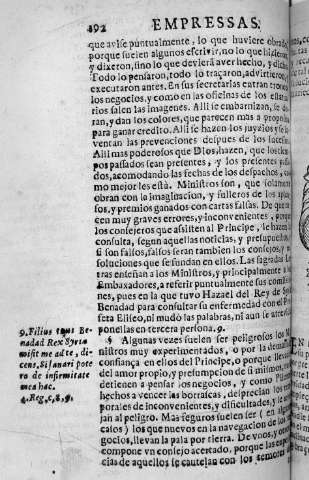 492 EMPRESSAS,
que avise puntualmente, lo que huviere obrado,
porque suelen algunos escrivir, no lo que hizieron
y dixeron, sino lo que devierá aver hecho, y dicho
Todo lo pensaron, todo lo traçaron, advirtieron,
executaron antes. En sus secretarias entran tronco
los negocios, y como en las oficinas de los
rios salen las imagenes. Alli se embarnizan, se
ran, y dan los colores, que parecen mas a proposi
para ganar credito. Alli se hazen los juyzios y se
ventan las prevenciones despues de los sucessos
Alli mas poderosos que Dios, hazen, que los tiem
pos passados sean presentes, y los presentes passa
dos, acomodando las fechas de los despachos, co
mo mejor les está. Ministros son, que solamente
obran con la imaginacion, y fulleros de los aplau
sos, y premios ganados con cartas falsas. De que na
cen muy graves errores, y inconvenientes, porque
los consejeros que assisten al Principe, le hazen la
consulta, segun aquellas noticias, y presupuestos
si son falsos, falsos serán tambien los consejos, y
soluciones que se fundan en ellos. Las sagradas Le
tras enseñan a los Ministros, y principalmente a los
Embaxadores, a referir puntualmente sus comissio
nes, pues en la que tuvo Hazael del Rey de Syria
Benadad para consultar su enfermedad con el Pro
feta Eliseo, ni mudó las palabras, ni aun se atrevió
ponellas en tercera persona. 9.
9. Filius tuus Be-
nadad Rex Syriæ
misit me ad te, di-
cens, Si sanari pote
ro de infirmitate
mea hac.
4. Reg, c, 8, 9.
§ Algunas vezes suelen ser peligrosos los Mi
nistros muy experimentados, o por la demasiada
confiança en ellos del Principe, o porque llevados
del amor propio, y presumpcion de si mismos,
detienen a pensar los negocios, y como Pilotos
hechos a vencer las borrascas, desprecian los tem
porales de inconvenientes, y dificultades, y se
jan al peligro. Mas seguros suelen ser (en algunos
casos) los que nuevos en la navegacion de los
gocios, llevan la pala por tierra. De unos, y otros
compone un consejo acertado, porque las experien
cias de aquellos se cautelan con los temores